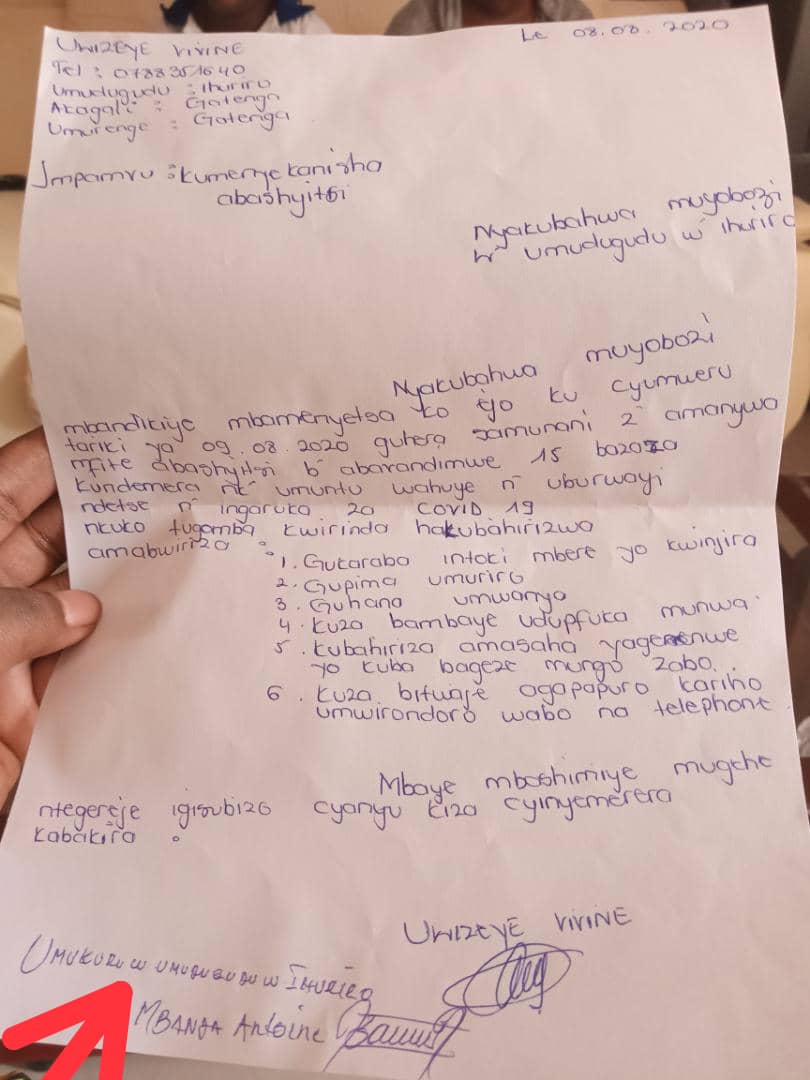 UWIZEYE VIVINE
Le 08.08.2020
Tel : 0788351640
Umudugudu : Ihuriro
Akagali : Gatenga
Umurenge : Gatenga
Impamvu : kumenyekanisha
abashyitsi
Nyakubahwa muyobozi
w' umudugudu w' ihuriro
Nyakubahwa muyobozi
mbandikiye mbamenyetsa ko ejo ku cyumweru
tariki ya 09.08.2020 guhera samunani z' amanywa
mfite abashyitsi b' abavandimwe 15 bazaza
kundemera nk' umuntu wahuye n' uburwayi
ndetse n' ingaruka za COVID 19
nkuko tugomba kwirinda hakubahirizwa
amabwiriza :
1. Gukaraba intoki mbere yo kwinjira
2. Gupima umuriro
3. Guhana umwanya
4. kuza bambaye udupfuka munwa
5. kubahiriza amasaha yagenenwe
yo kuba bageze mungo zabo.
6. kuza bitwaje agapapuro kariho
umwirondoro wabo na telephone.
Mbaye mbashimiye mugihe
ntegereje igisubizo cyanyu kiza cyinyemerera
kabakira.
UWIZEYE VIVINE
UMUKURU W UMUDUGUDU W IHURIRO
MBANDA Antoine